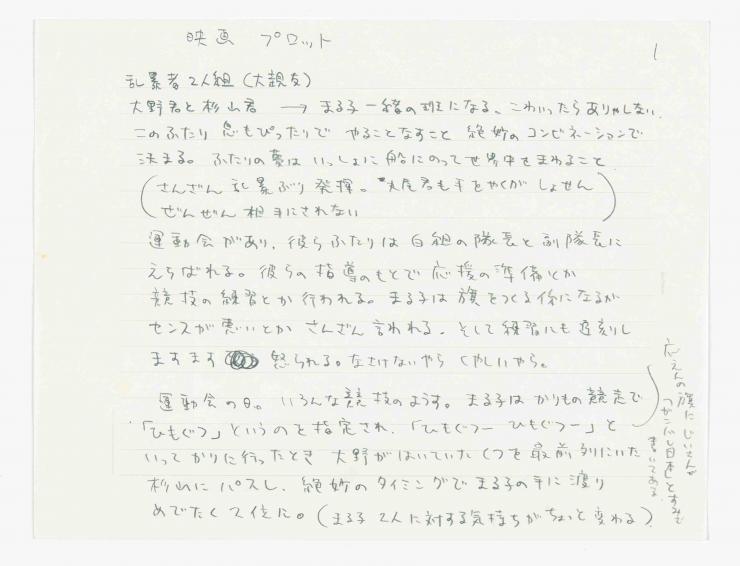 映画 プロット
1
乱暴者2人組(大親友)
大野君と杉山君 → まる子一緒の班になる、こわいったらありゃしない
このふたり 息もぴったりで やることなすこと 絶妙のコンビネーションで
決まる。ふたりの夢は いっしょに船にのって世界中をまわること
(さんざん 乱暴ぶり 発揮。丸尾君も手をやくが しょせん
ぜんぜん相手にされない)
運動会があり、彼らふたりは白組の隊長と副隊長に
えらばれる。彼らの指導のもとで 応援の準備とか
競技の練習とか行われる。まる子は旗をつくる係になるが
センスが悪いとか さんざん言われる、そして練習にも遅刻し
ますます 怒られる。なさけないやら くやしいやら。
運動会の日。いろんな競技のようす。まる子はかりもの競走で
「ひもぐつ」というのを指定され、「ひもぐつー ひもぐつー」と
いってかりに行ったとき 大野がはいていたくつを最前列にいた
杉山にパスし、絶妙のタイミングでまる子の手に渡り
めでたく2位に。(まる子 2人に対する気持ちがちょっと変わる)
応えんの旗にじいさんが
「がんばし日本」とすみで
書いてある